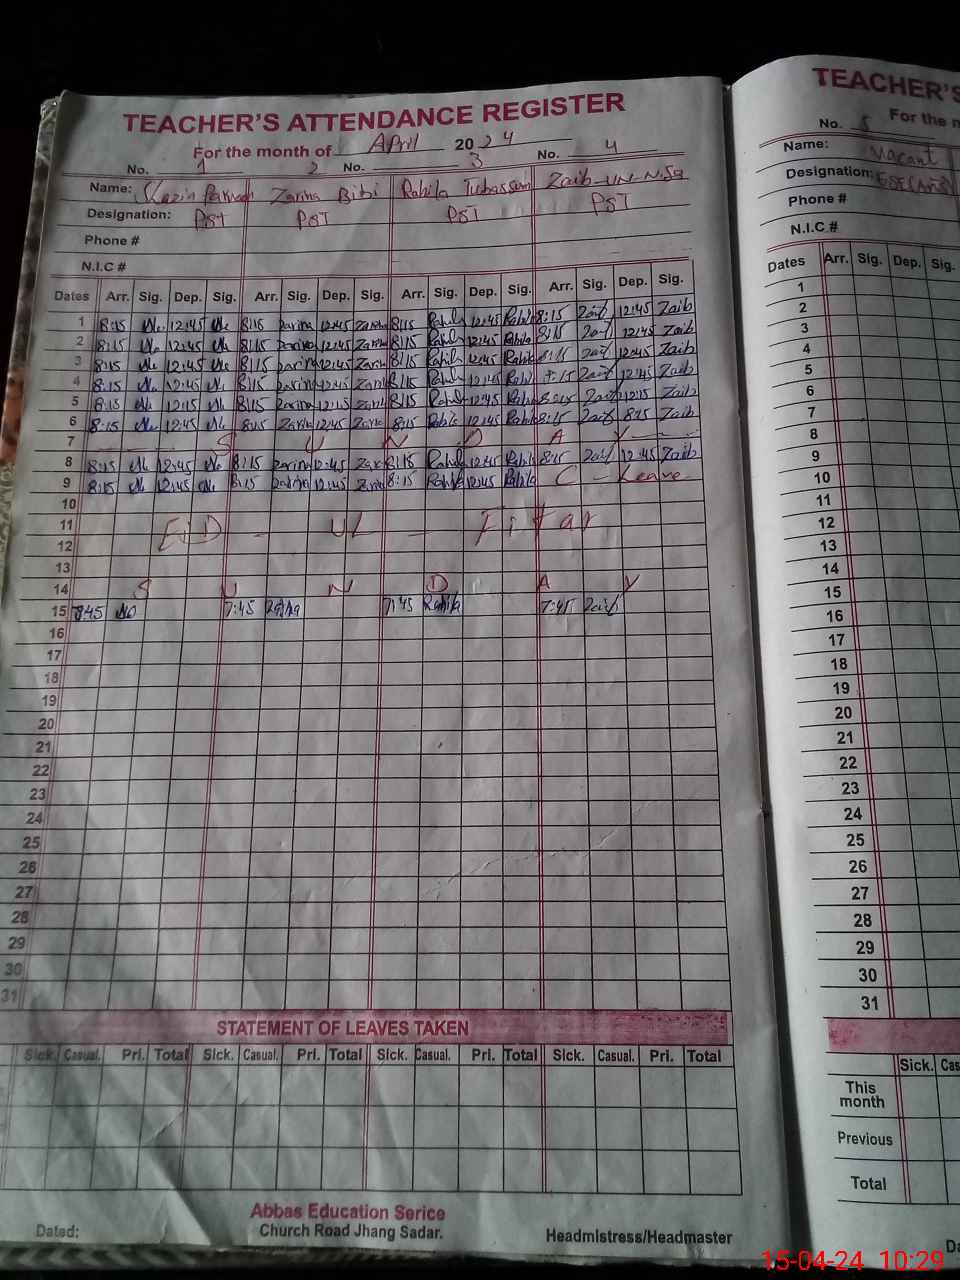 TEACHER'S ATTENDANCE REGISTER
For the month of April 2024
No. 1 2 No. 3 No. 4
Name: Zarina Bibi Rahila Tubassum Zaib-UN-Nisa
Designation: PST PST PST PST
Phone #
N.I.C #
Dates Arr. Sig. Dep. Sig. Arr. Sig. Dep. Sig. Arr. Sig. Dep. Sig. Arr. Sig. Dep. Sig.
1 8:15 12:45 8:15 Zarina 12:45 Zarina 8:15 Rahila 12:45 Rahila 8:15 Zaib 12:45 Zaib
2 8:15 12:45 8:15 Zarina 12:45 8:15 Rahila 12:45 Rahila 8:15 Zaib 12:45 Zaib
3 8:15 12:45 8:15 Zarina 12:45 8:15 Rahila 12:45 Rahila 8:15 Zaib 12:45 Zaib
4 8:15 12:45 8:15 Zarina 12:45 8:15 Rahila 12:45 Zaib 12:45 Zaib
5 8:15 12:15 8:15 Zarina 12:15 8:15 Rahila 12:45 Zaib 12:15 Zaib
6 8:15 12:45 8:15 Zarina 12:45 8:15 12:45 Rahila 8:15 Zaib 8:15 Zaib
7 S U N D A Y
8 8:15 12:45 8:15 Zarina 12:45 8:15 Rahila 12:45 Rahila 8:15 Zaib 12:45 Zaib
9 8:15 12:45 8:15 Zarina 12:45 8:15 Rahila 12:45 Rahila C - Leave -
10
11 EID - UL - Fitar
12
13
14 S U N D A Y
15 7:45 7:45 Zarina 7:45 Rahila 7:45 Zaib
16
17
18
19
20
21
22
23
24
25
26
27
28
29
30
31
STATEMENT OF LEAVES TAKEN
Sick. Casual. Pri. Total Sick. Casual. Pri. Total Sick. Casual. Pri. Total Sick. Casual. Pri. Total
Dated:
Abbas Education Serice
Church Road Jhang Sadar.
Headmistress/Headmaster
TEACHER'S
For the m
No. 5
Name: Vacant
Designation:
Phone #
N.I.C #
Dates Arr. Sig. Dep. Sig.
1
2
3
4
5
6
7
8
9
10
11
12
13
14
15
16
17
18
19
20
21
22
23
24
25
26
27
28
29
30
31
Sick. Cas
This month
Previous
Total
Da
15-04-24 10:29